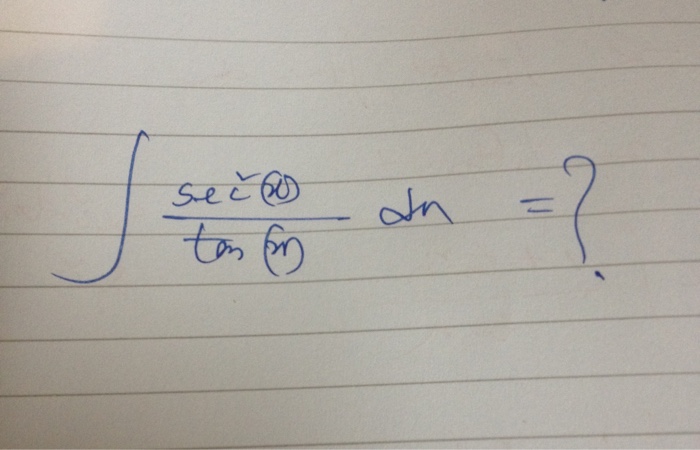 ∫ sec²(x) / tan(x) dx = ?